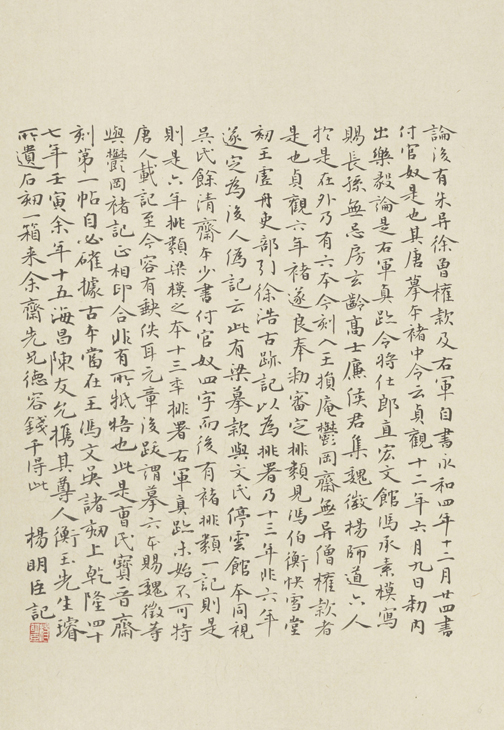 論後有朱异徐僧權款及右軍自書永和四年十二月廿四書
付官奴是也其唐摹本褚中令云貞觀十二年六月九日勑內
出樂毅論是右軍真跡令將仕郎直宏文館馮承素模寫
賜長孫無忌房玄齡高士廉侯君集魏徵楊師道六人
於是在外乃有六本今刻入王損庵鬱岡齋無异僧權款者
是也貞觀六年褚遂良奉勑審定排類見馮伯衡快雪堂
刻王虛舟吏部引徐浩古跡記以為排署乃十三年非六年
遂定為後人偽記云此有梁摹款與文氏停雲館本同視
吳氏餘清齋本少書付官奴四字而後有褚排類一記則是
則是六年排類梁模之本十三年排署右軍真跡未始不可特
唐人載記至今容有缺佚耳元章後跋謂摹六本賜魏徵等
與鬱岡褚記正相印合非有所牴牾也此是曹氏寶音齋
刻第一帖自必確據古本當在王馮文吳諸刻上乾隆四十
七年壬寅余年十五海昌陳友允攜其尊人衡玉先生璿
所遺石刻一箱來余齋先兄德容錢千得此
楊明臣記